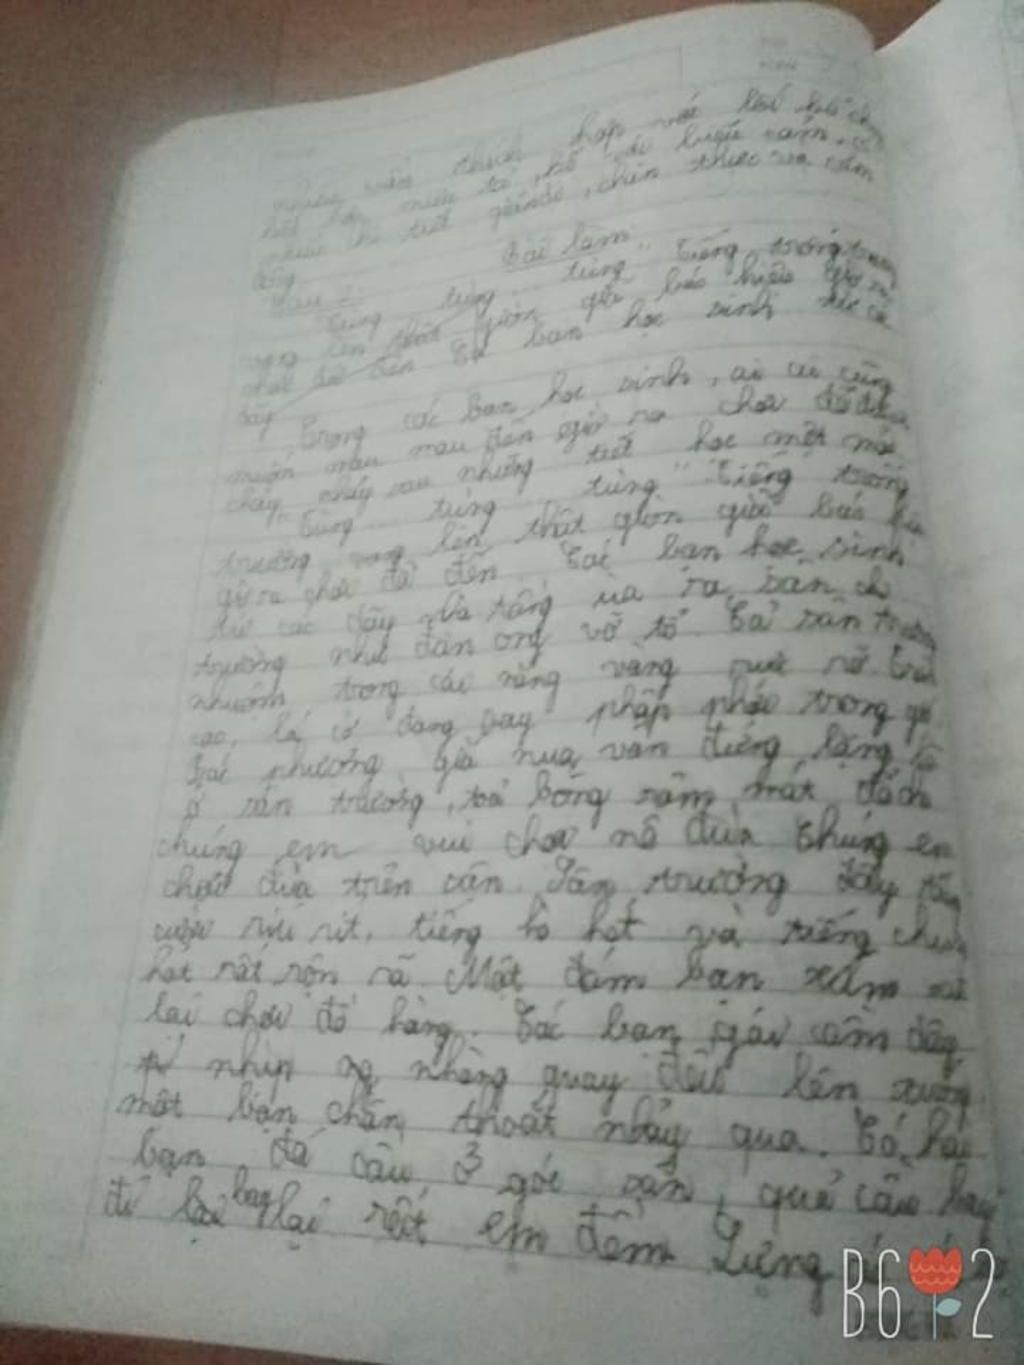 thích hợp với
miêu tả, kể và biểu cảm, có
chi tiết chân thực và cảm
động
Bài làm
Tùng tùng tùng" Tiếng trống trường
vang lên thật giòn giã báo hiệu giờ ra
chơi đã đến Các bạn học sinh
Trong các bạn học sinh, ai ai cũng
muốn mau mau đến giờ ra chơi để
chạy nhảy sau những tiết học mệt mỏi
"Tùng tùng tùng" Tiếng trống
trường vang lên thật giòn giã báo
giờ ra chơi đã đến. Các bạn học sinh
từ các dãy nhà tầng ùa ra sân
trường như đàn ong vỡ tổ. Cả sân trường
nhuốm trong cái nắng vàng rực rỡ. Trên
cao, lá cờ đang bay phấp phới trong gió.
Bác phượng già nua vẫn đứng lặng
ở sân trường, toả bóng râm mát
chúng em vui chơi nô đùa Chúng em
chơi đùa trên sân. Sân trường đầy tiếng
cười ríu rít, tiếng hò hét và tiếng chim
hót rất rộn rã Một đám bạn xúm
lại chơi đồ hàng. Các bạn gái cầm dây
nhịp nhàng quay đều lên xuống
một bạn chân thoắt nhảy qua. Có hai
bạn đá cầu ở góc sân, quả cầu bay
đi bay lại rất êm đềm Từng
B6 2